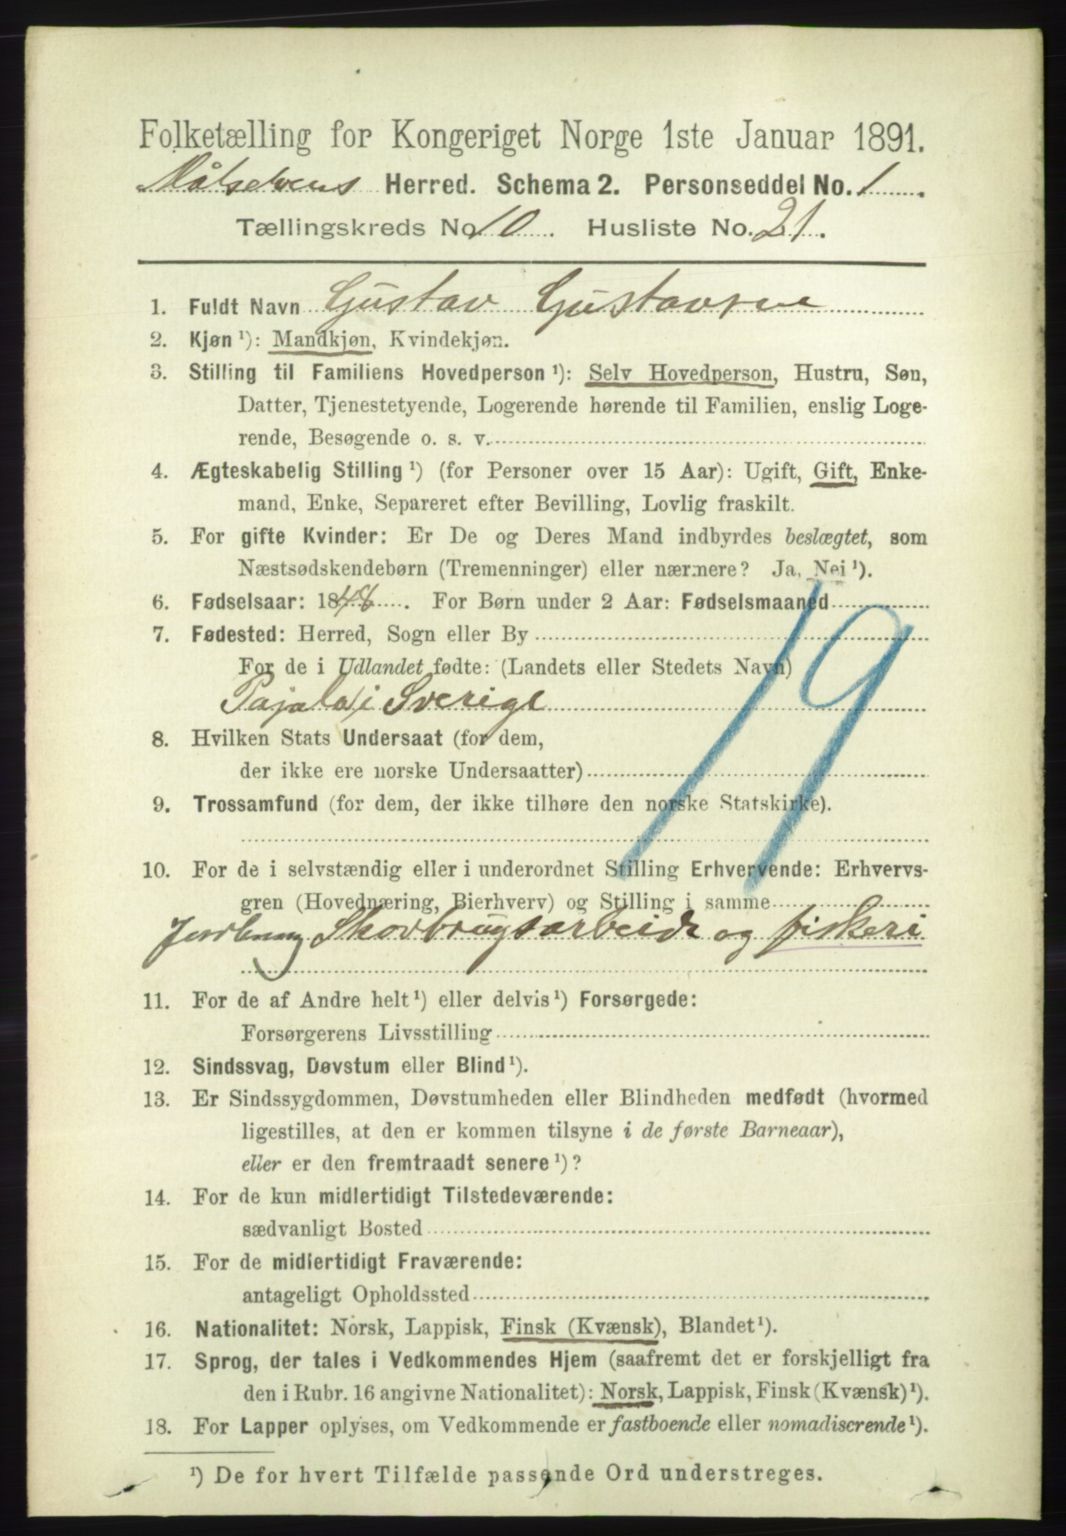 Folketælling for Kongeriget Norge 1ste Januar 1891.
Målselvens Herred. Schema 2. Personseddel No. 1.
Tællingskreds No. 10. Husliste No. 21.
1. Fuldt Navn Gustav Gustavsen
2. Kjøn ¹): Mandkjøn, Kvindekjøn.
3. Stilling til Familiens Hovedperson ¹): Selv Hovedperson, Hustru, Søn,
Datter, Tjenestetyende, Logerende hørende til Familien, enslig Loge-
rende, Besøgende o. s. v.
4. Ægteskabelig Stilling ¹) (for Personer over 15 Aar): Ugift, Gift, Enke-
mand, Enke, Separeret efter Bevilling, Lovlig fraskilt.
5. For gifte Kvinder: Er De og Deres Mand indbyrdes beslægtet, som
Næstsødskendebørn (Tremenninger) eller nærmere? Ja, Nei ¹).
6. Fødselsaar: 1848. For Børn under 2 Aar: Fødselsmaaned
7. Fødested: Herred, Sogn eller By
For de i Udlandet fødte: (Landets eller Stedets Navn)
Pajala i Sverige
8. Hvilken Stats Undersaat (for dem,
der ikke ere norske Undersaatter)
9. Trossamfund (for dem, der ikke tilhøre den norske Statskirke).
19
10. For de i selvstændig eller i underordnet Stilling Erhvervende: Erhvervs-
gren (Hovednæring, Bierhverv) og Stilling i samme
Skovbrugsarbeide og fiskeri
11. For de af Andre helt ¹) eller delvis ¹) Forsørgede:
Forsørgerens Livsstilling
12. Sindssvag, Døvstum eller Blind ¹).
13. Er Sindssygdommen, Døvstumheden eller Blindheden medfødt (hvormed
ligestilles, at den er kommen tilsyne i de første Barneaar),
eller er den fremtraadt senere ¹)?
14. For de kun midlertidigt Tilstedeværende:
sædvanligt Bosted
15. For de midlertidigt Fraværende:
antageligt Opholdssted
16. Nationalitet: Norsk, Lappisk, Finsk (Kvænsk), Blandet ¹).
17. Sprog, der tales i Vedkommendes Hjem (saafremt det er forskjelligt fra
den i Rubr. 16 angivne Nationalitet): Norsk, Lappisk, Finsk (Kvænsk) ¹).
18. For Lapper oplyses, om Vedkommende er fastboende eller nomadiserende ¹).
¹) De for hvert Tilfælde passende Ord understreges.